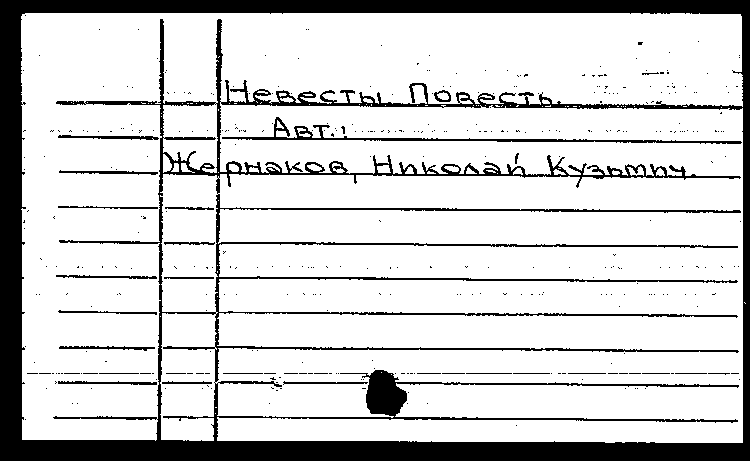 Невесты. Повесть.
Авт.:
Жернаков, Николай Кузьмич.